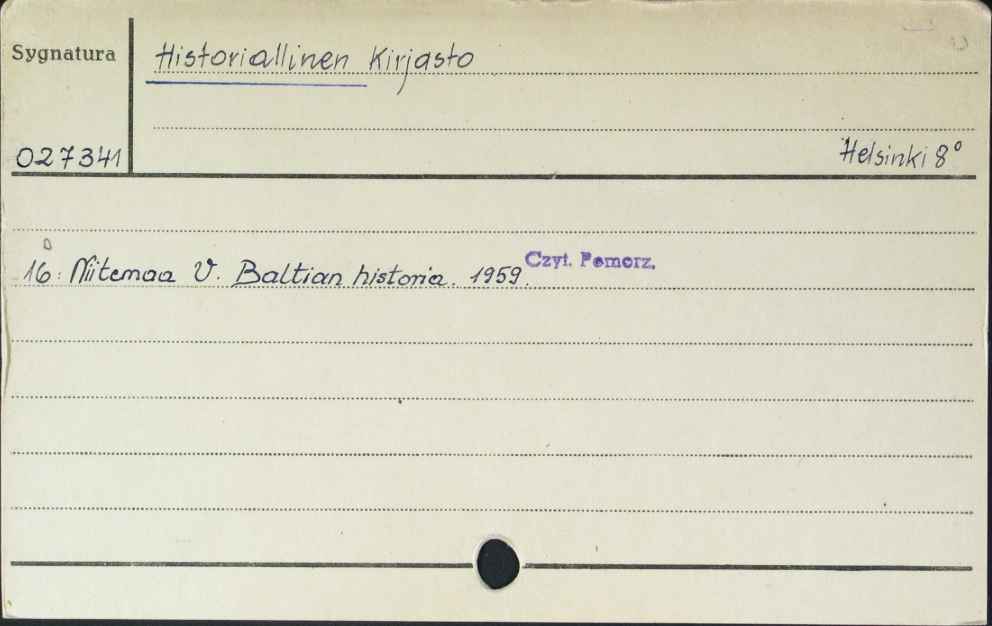 Sygnatura
Historiallinen Kirjasto
027341
Helsinki 8°
16: Niitemaa V. Baltian historia. 1959. Czyt. Pomorz.